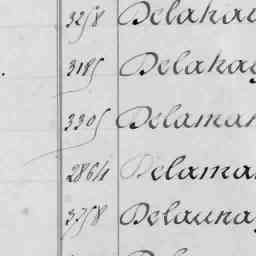 3258 Delahay
3185 Delahay
3305 Delaman
2864 Delaman
3758 Delaunay